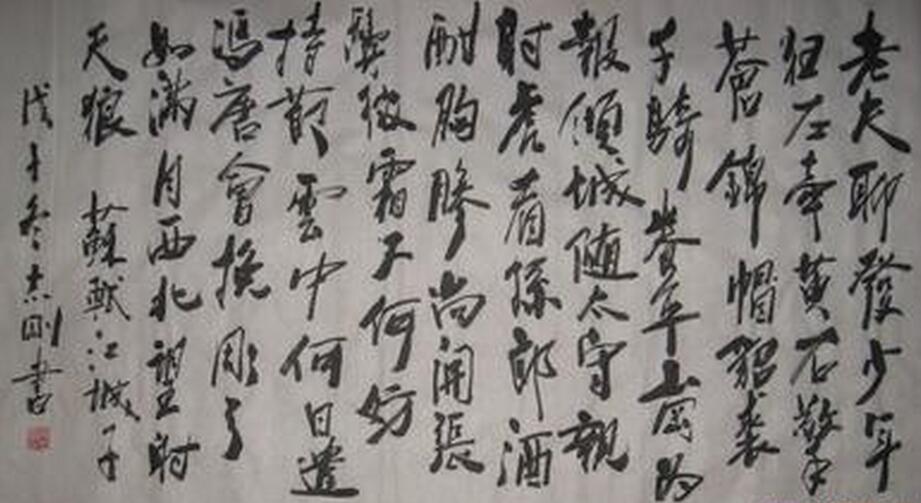 老夫聊發少年
狂左牽黃右擎
蒼錦帽貂裘
千騎卷平岡為
報傾城隨太守親
射虎看孫郎酒
酣胸膽尚開張
鬢微霜又何妨
持節雲中何日遣
馮唐會挽彫弓
如滿月西北望射
天狼 蘇軾江城子
戊子冬志剛書